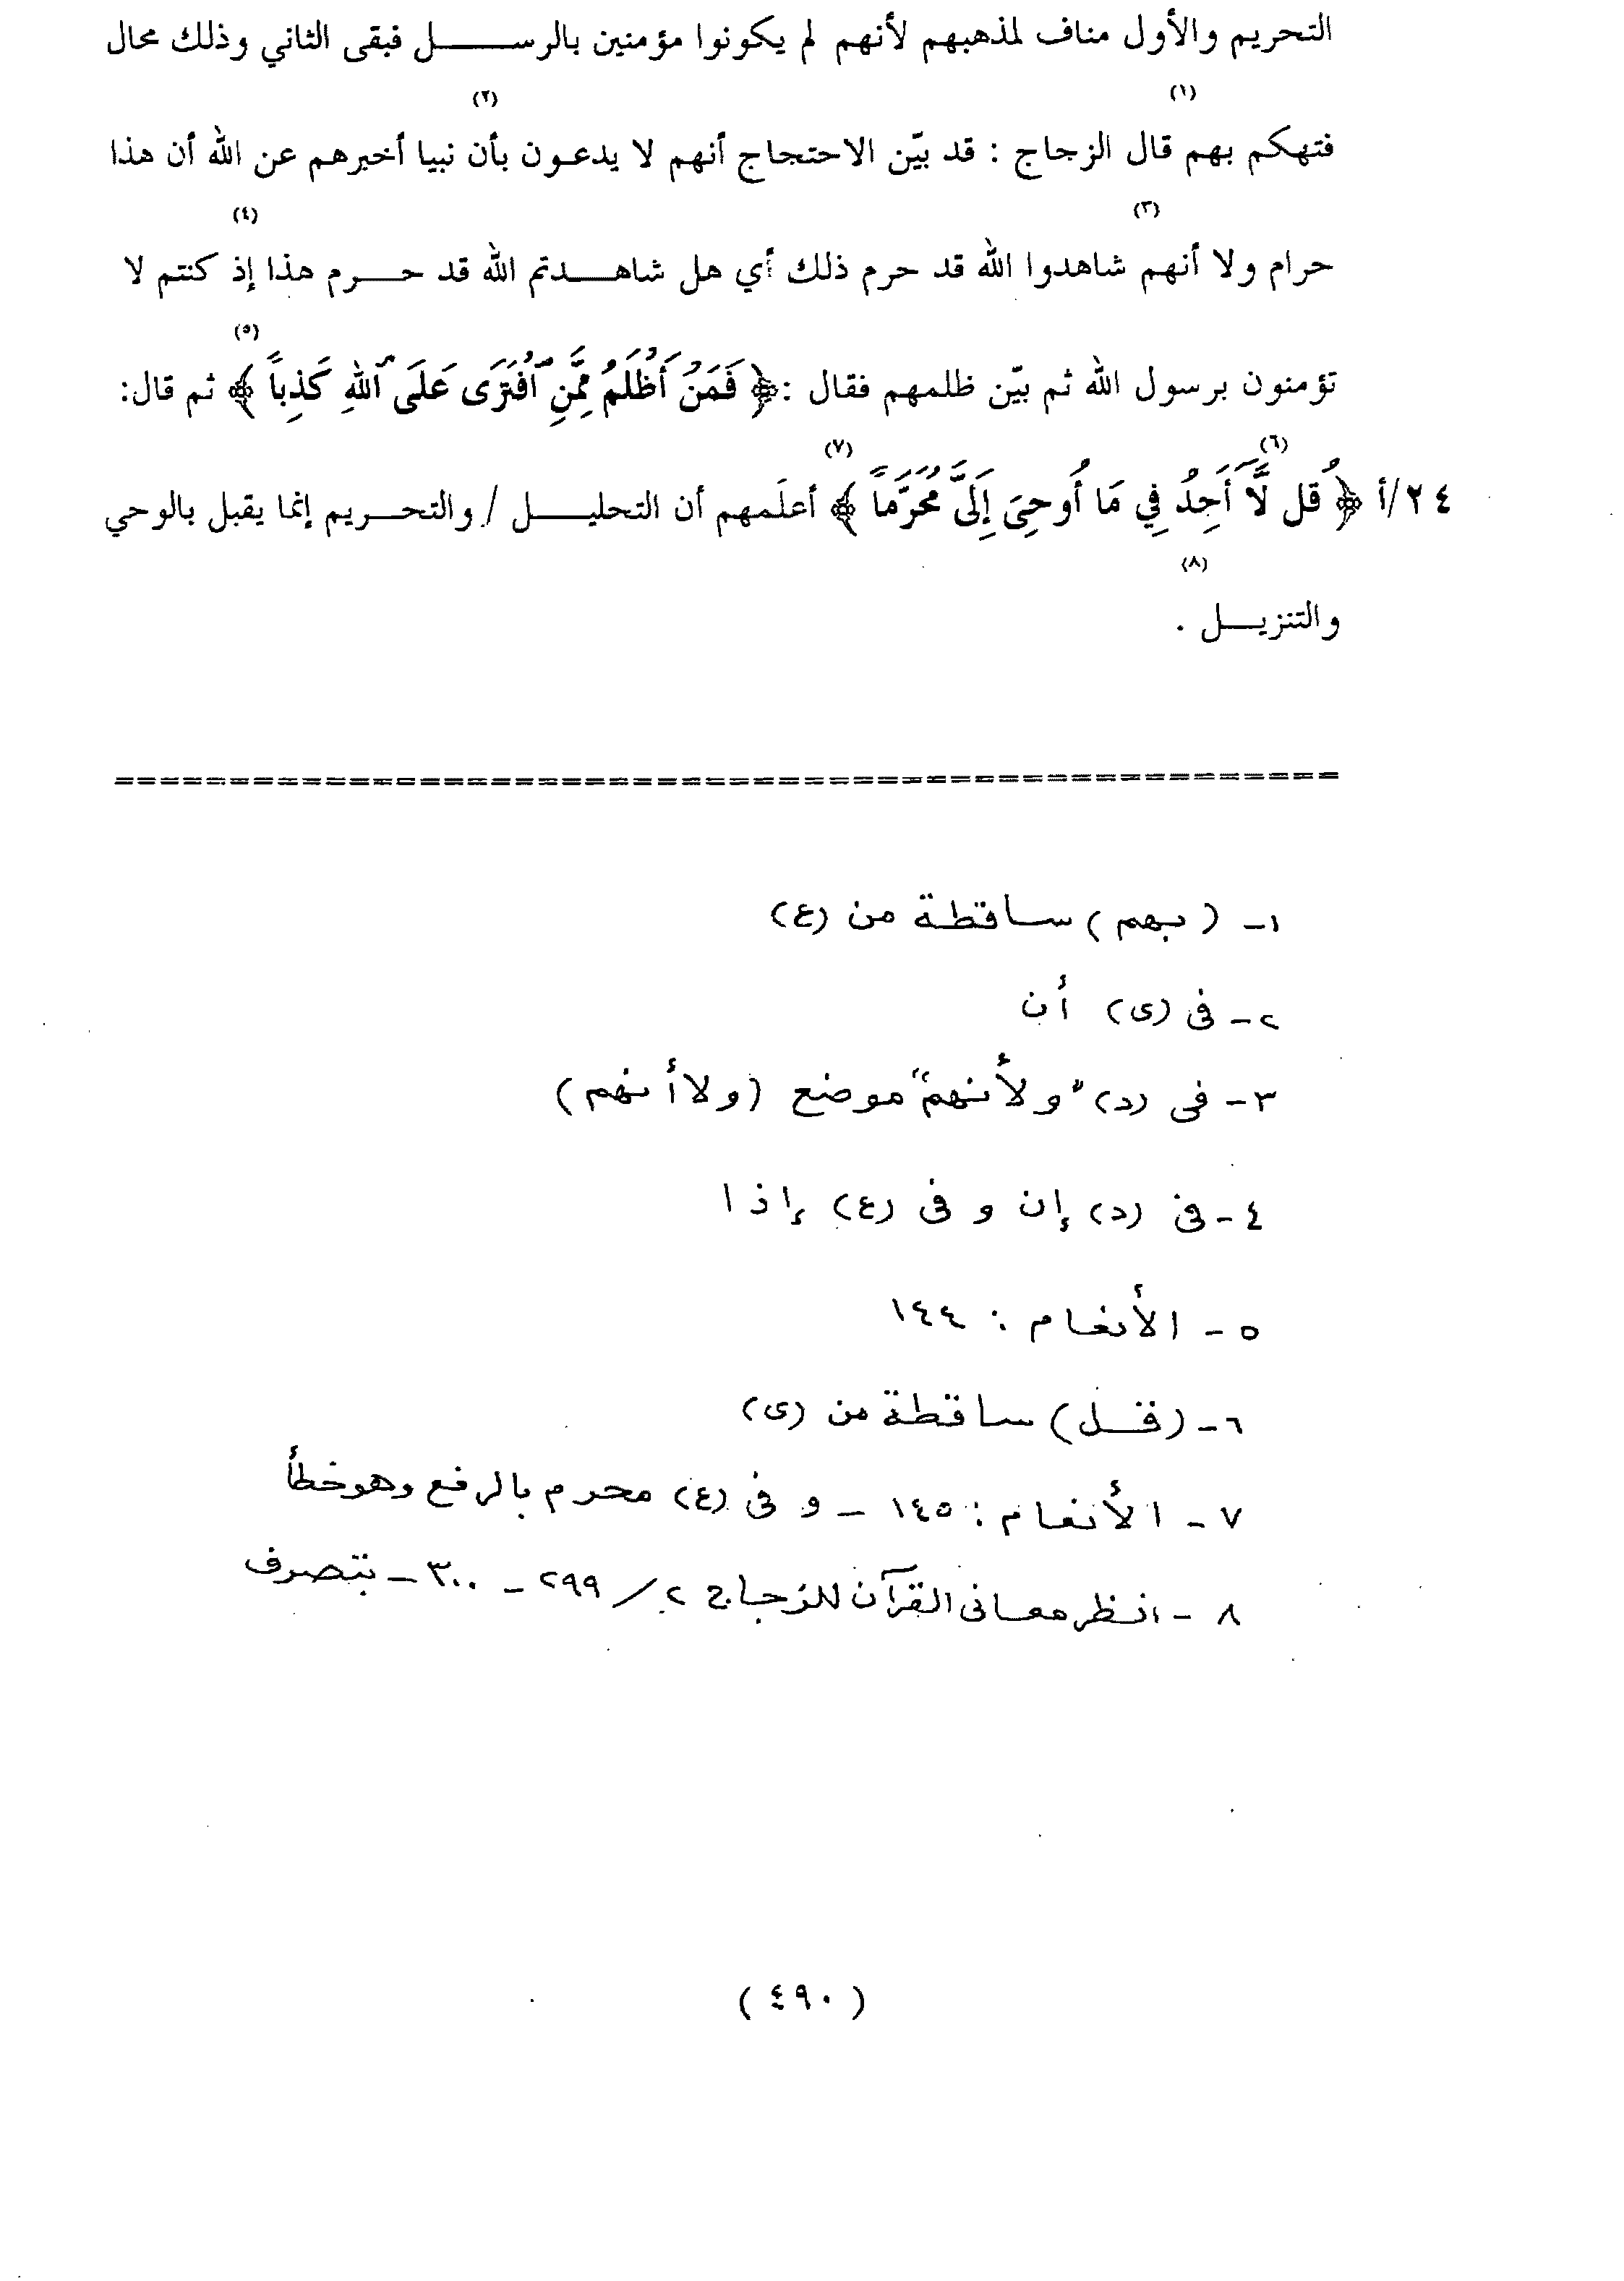 التحريم والأول مناف لمذهبهم لأنهم لم يكونوا مؤمنين بالرســـل فبقى الثاني وذلك محال
(١) (٢)
فتهكم بهم قال الزجاج : قد بيّن الاحتجاج أنهم لا يدعـون بأن نبيا أخبرهم عن الله أن هذا
(٣) (٤)
حرام ولا أنهم شاهدوا الله قد حرم ذلك أي هل شاهـــدتم الله قد حـــرم هذا إذ كنتم لا
(٥)
تؤمنون برسول الله ثم بيّن ظلمهم فقال :﴿ فَمَنْ أَظْلَمُ مِمَّنِ ٱفْتَرَى عَلَى ٱللَّهِ كَذِباً ﴾ ثم قال:
(٦) (٧)
٢٤/أ ﴿ قُل لَّا أَجِدُ فِي مَا أُوحِىَ إِلَىَّ مُحَرَّماً ﴾ أعلَمهم أن التحليـــل / والتحـــريم إنما يقبل بالوحي
(٨)
والتنزيـــل .
==================================================
١- ( بهم ) ساقطة من (ع)
٢- فى (ى) أن
٣- فى (د) "ولأنهم" موضع (ولا أنهم)
٤- فى (د) إن و فى (ع) إذا
٥- الأنعام : ١٤٤
٦- (قل) ساقطة من (ى)
٧- الأنعام : ١٤٥ - و فى (ع) محرم بالرفع وهو خطأ
٨- انظر معانى القرآن للزجاج ٢/ ٢٩٩ - ٣٠٠ - بتصرف
( ٤٩٠ )